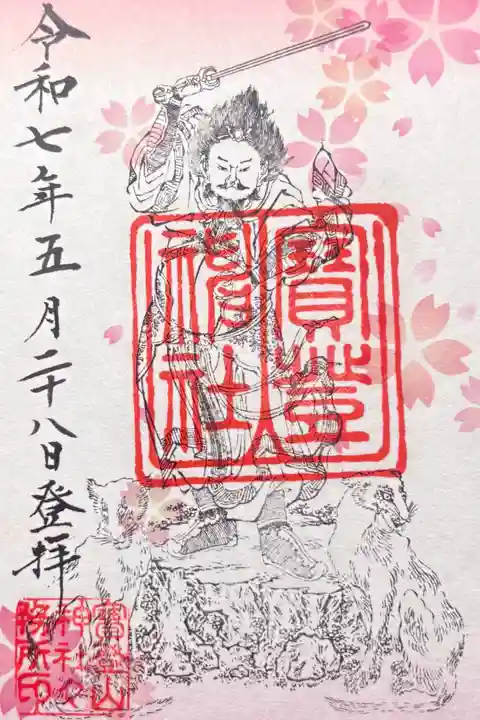 令和七年五月二十八日登拝
寶登
神社
寶登山
神社々
務所印